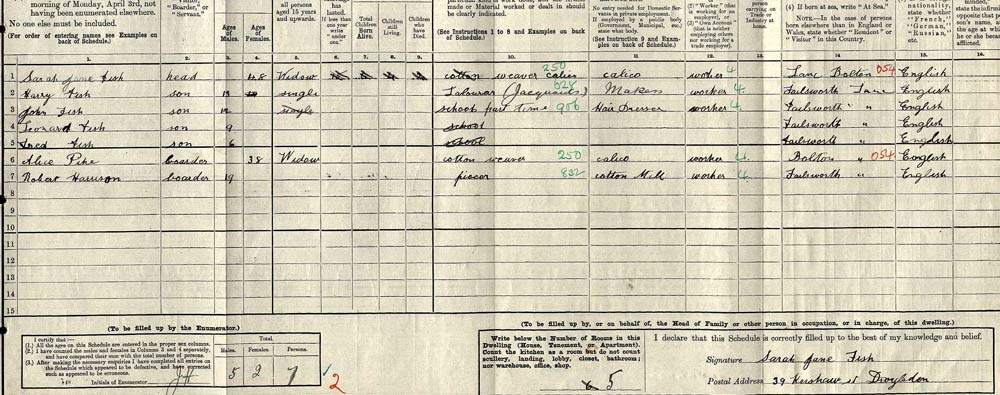 morning of Monday, April 3rd, not having been enumerated elsewhere.
No one else must be included.
(For order of entering names see Examples on back of Schedule.)
"Boarder," or "Servant."
Ages of Males.
Ages of Females.
all persons aged 15 years and upwards.
has lasted. (If less than one year write "under one."
Total Children Born Alive.
Children still Living.
Children who have Died.
made or Material worked or dealt in should be clearly indicated.
(See Instructions 1 to 8 and Examples on back of Schedule.)
No entry needed for Domestic Servants in private employment. If employed by a public body (Government, Municipal, &c.) state what body.
(See Instruction 9 and Examples
(2) "Worker" (that is working for an employer), or
(3) "Own Account" (that is neither employing others nor working for a trade employer).
person carrying on Trade or Industry at
(4) If born at sea, write "At Sea."
NOTE.—In the case of persons born elsewhere than in England or Wales, state whether "Resident" or "Visitor" in this Country.
nationality, state whether "French," "German," "Russian," etc.
1. 2. 3. 4. 5. 6. 7. 8. 9. 10. 11. 12. 13. 14. 15.
1 Sarah Jane Fish head 48 Widow cotton weaver calico 250 calico worker 4 Lanc Bolton 054 English
2 Harry Fish son single (Jacquards) 028 Makers worker 4. Failsworth Lanc English
3 John Fish son single school part time 906 Hair Dresser worker 4. Failsworth " English
4 Leonard Fish son 9 school Failsworth " English
5 Fred Fish son 6 school Failsworth " English
6 Alice Pike boarder 38 Widow cotton weaver 250 calico worker 4. Bolton " 054 English
7 Robert Harrison boarder 19 piecer 832 cotton Mill worker 4. Failsworth " English
8
9
10
11
12
13
14
15
(To be filled up by the Enumerator.)
I certify that:—
(1.) All the ages on this Schedule are entered in the proper sex columns.
(2.) I have counted the males and females in Columns 3 and 4 separately, and have compared their sum with the total number of persons.
(3.) After making the necessary enquiries I have completed all entries on the Schedule which appeared to be defective, and have corrected such as appeared to be erroneous.
Initials of Enumerator
Total.
Males. Females. Persons.
5 2 7
2
(To be filled up by, or on behalf of, the Head of Family or other person in occupation, or in charge, of this dwelling.)
Write below the Number of Rooms in this Dwelling (House, Tenement, or Apartment). Count the kitchen as a room but do not count scullery, landing, lobby, closet, bathroom; nor warehouse, office, shop.
5
I declare that this Schedule is correctly filled up to the best of my knowledge and belief.
Signature Sarah Jane Fish
Postal Address 39 Kershaw St Droylsden